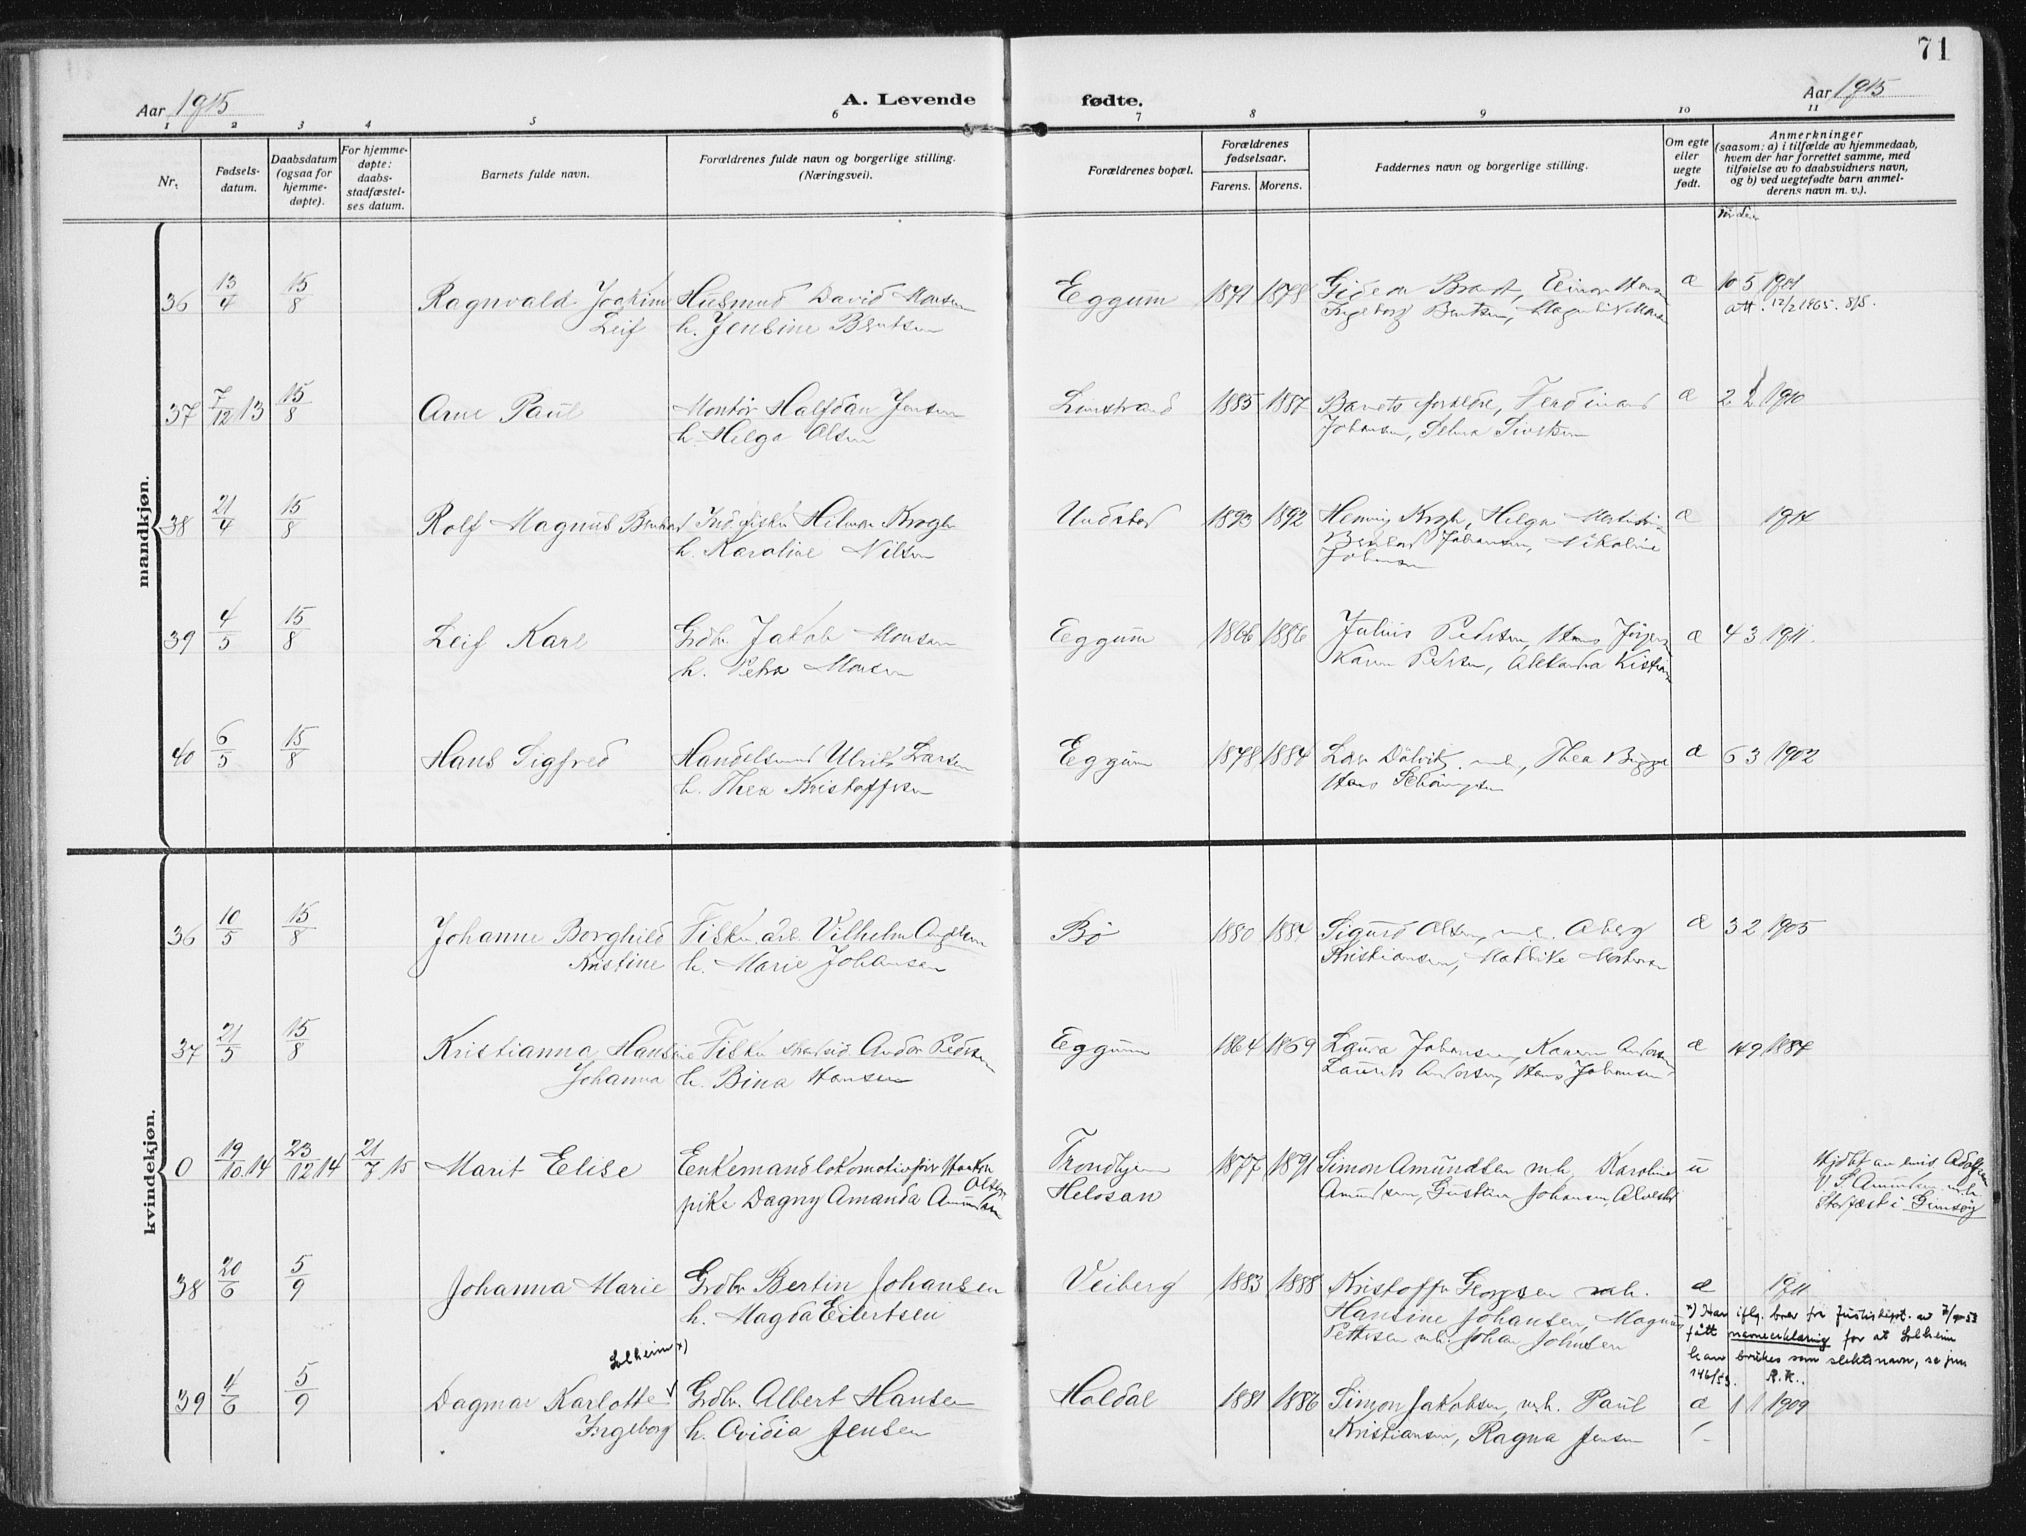 71
Aar 1915
A. Levende fødte.
Aar 1915
1 2 3 4 5 6 7 8 9 10 11
Nr.
Fødsels-
datum.
Daabsdatum
(ogsaa for
hjemme-
døpte).
For hjemme-
døpte:
daabs-
stadfæstel-
ses datum.
Barnets fulde navn.
Forældrenes fulde navn og borgerlige stilling.
(Næringsvei).
Forældrenes bopæl.
Forældrenes
fødselsaar.
Farens. Morens.
Faddernes navn og borgerlige stilling.
Om egte
eller
uegte
født.
Anmerkninger
(saasom: a) i tilfælde av hjemmedaab,
hvem der har forrettet samme, med
tilføielse av to daabsvidners navn,
og b) ved uegtefødte barn anmel-
derens navn m. v.).
mandkjøn.
36 13/4 15/8 Ragnvald Joakim Husmand David Monsen Eggum 1871 1878 Gideon Brandt, Einar Hansen æ 10 5 1901
Leif h. Jensine Bentsen Ingeborg Bentsen, att. 12/2 1965.
37 7/12 13 15/8 Arne Paul Montør Halfdan Jensen Limstrand 1885 1887 Barnets forældre, Ferdinand æ 2 2 1910
h. Helga Olsen Johansen, Selma Sivertsen
38 21/4 15/8 Rolf Magnus Bernhard Indfisker Hilmar Krogh Undstad 1893 1892 Henrik Krogh, Helga æ 1914
h. Karoline Nilsen Bernhard Johansen, Nikoline
Johansen
39 4/5 15/8 Leif Karl Grdbr. Jakob Monsen Eggum 1866 1886 Julius Pedersen, Hans æ 4 3 1911.
h. Petra Monsen Karen Pedersen, Aleksandra
40 6/5 15/8 Hans Sigfred Handelsmand Ulrik Larsen Eggum 1878 1884 Lars m.h., Thea æ 6 3 1902
h. Thea Kristoffersen Hans
kvindekjøn.
36 10/5 15/8 Johanne Borghild Fisker arb. Vilhelm Bø 1880 1884 Sigurd Olsen, m.h. Aberg æ 3 2 1905
Kristine h. Marie Johansen Kristiansen,
37 21/5 15/8 Kristianna Hansine Fisker Andor Pedersen Eggum 1864 1859 Laura Johansen, Karen Andorsen æ 14 9 1884
Johanna h. Bina Hansen Laurits Andorsen, Hans Johansen
0 19/10 14 23/12 14 21/7 15 Marit Elise Enkemand lokomotivfører Haakon Olsen Trondhjem 1877 1891 Simon Amundsen m.h, Karoline u Hjdbt av
pike Dagny Amanda Amundsen Helosan Amundsen, Gustav Johansen, v/ S. Amundsen m.h.
Stadfæst i Gimsøy
38 20/6 5/9 Johanna Marie Grdbr Bertin Johansen Veiberg 1883 1888 Kristoffer m.h. æ 1911
h. Magda Eilertsen Hansine Johansen, Magnus
Pettersen m.h. Johan Johnsen
x) Har iflg. brev fra Justisdept. av
fått navneerklæring for at Solheim
kan brukes som slektsnavn, se jnr
146/53. R.K.
Solheim x)
39 4/6 5/9 Dagmar Karlotte Grdbr. Albert Hansen Holdal 1881 1886 Simon Jakobsen, m.h. Paul æ 1 1 1909
Ingeborg h. Ovidia Jensen Kristiansen, Ragna Jensen